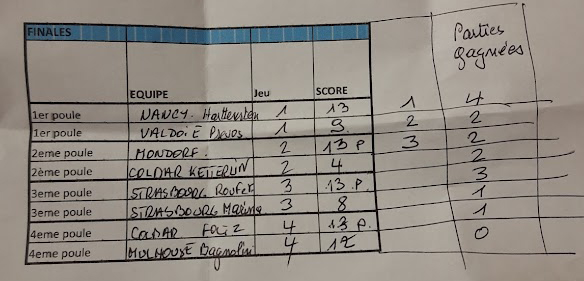 FINALES
Parties gagnées
EQUIPE Jeu SCORE
1er poule NANCY. 1 13 1 4
1er poule VALDOIE 1 9 2 2
2eme poule MONDORF. 2 13 P 3 2
2ème poule COLMAR KETTERLIN 2 4 2
3eme poule STRASBOURG 3 13 P. 3
3eme poule STRASBOURG 3 8 1
4eme poule COLMAR FOLTZ 4 13 P. 1
4eme poule MULHOUSE Bagnolini 4 12 0